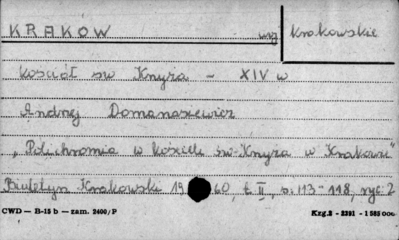 KRAKOW woj krakowskie
Kościół św Krzyża - XIV w
Andrzej Domanasiewicz
„Polichromia w kościele św. Krzyża w Krakowie"
Biuletyn Krakowski 1960, t. II, s. 113-118, ryc. 2
CWD — B-15 b — zam. 2400/P Kzg. 2 - 2291 - 1 565 000